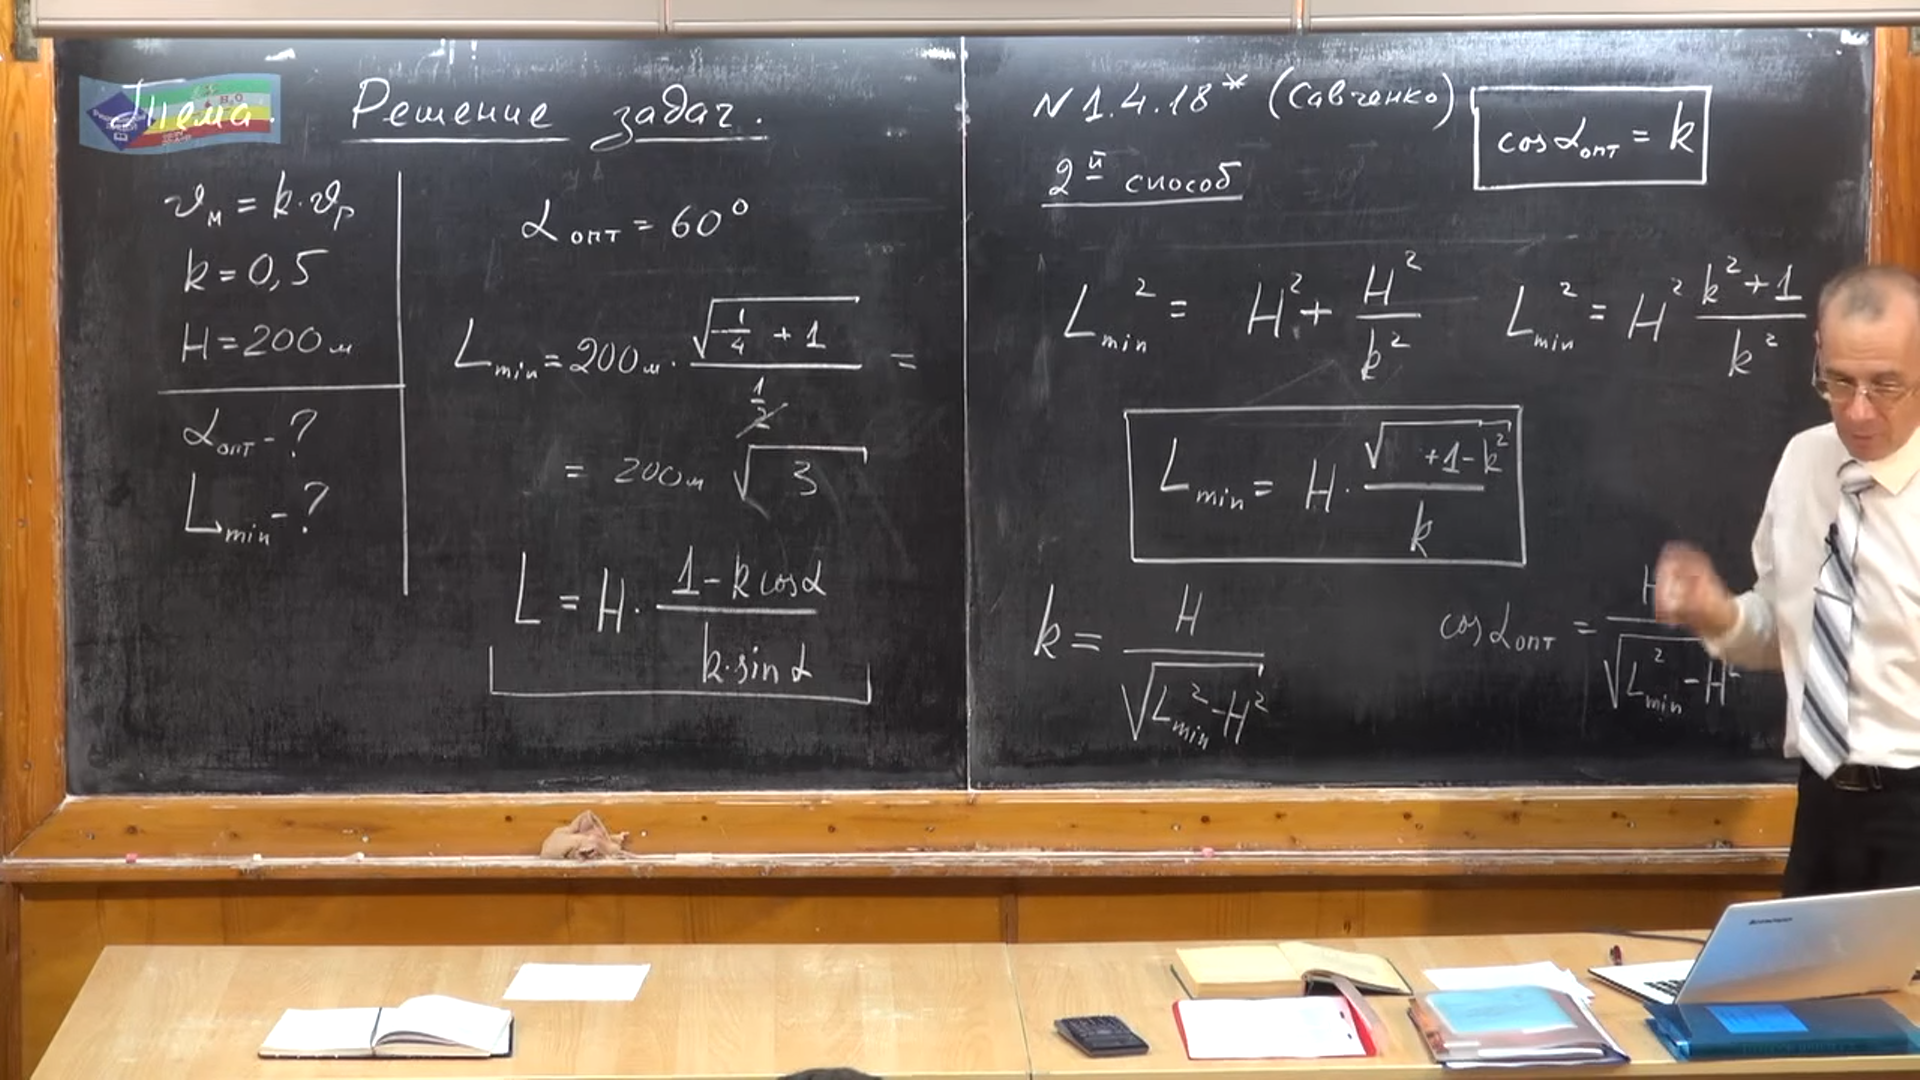 Тема. Решение задач.
𝜗м = k·𝜗р
k = 0,5
H = 200 м
αопт - ?
Lmin - ?
αопт = 60°
Lmin = 200 м · √(1/4 + 1) / (1/2) =
= 200 м √3
L = H · (1 - k cosα) / (k·sin α)
N 1.4.18* (Савченко)
cos αопт = k
2й способ
Lmin² = H² + H²/k²
Lmin² = H² (k² + 1)/k²
Lmin = H · √(+1 - k²) / k
k = H / √(Lmin² - H²)
cos αопт = H / √(Lmin² - H²)